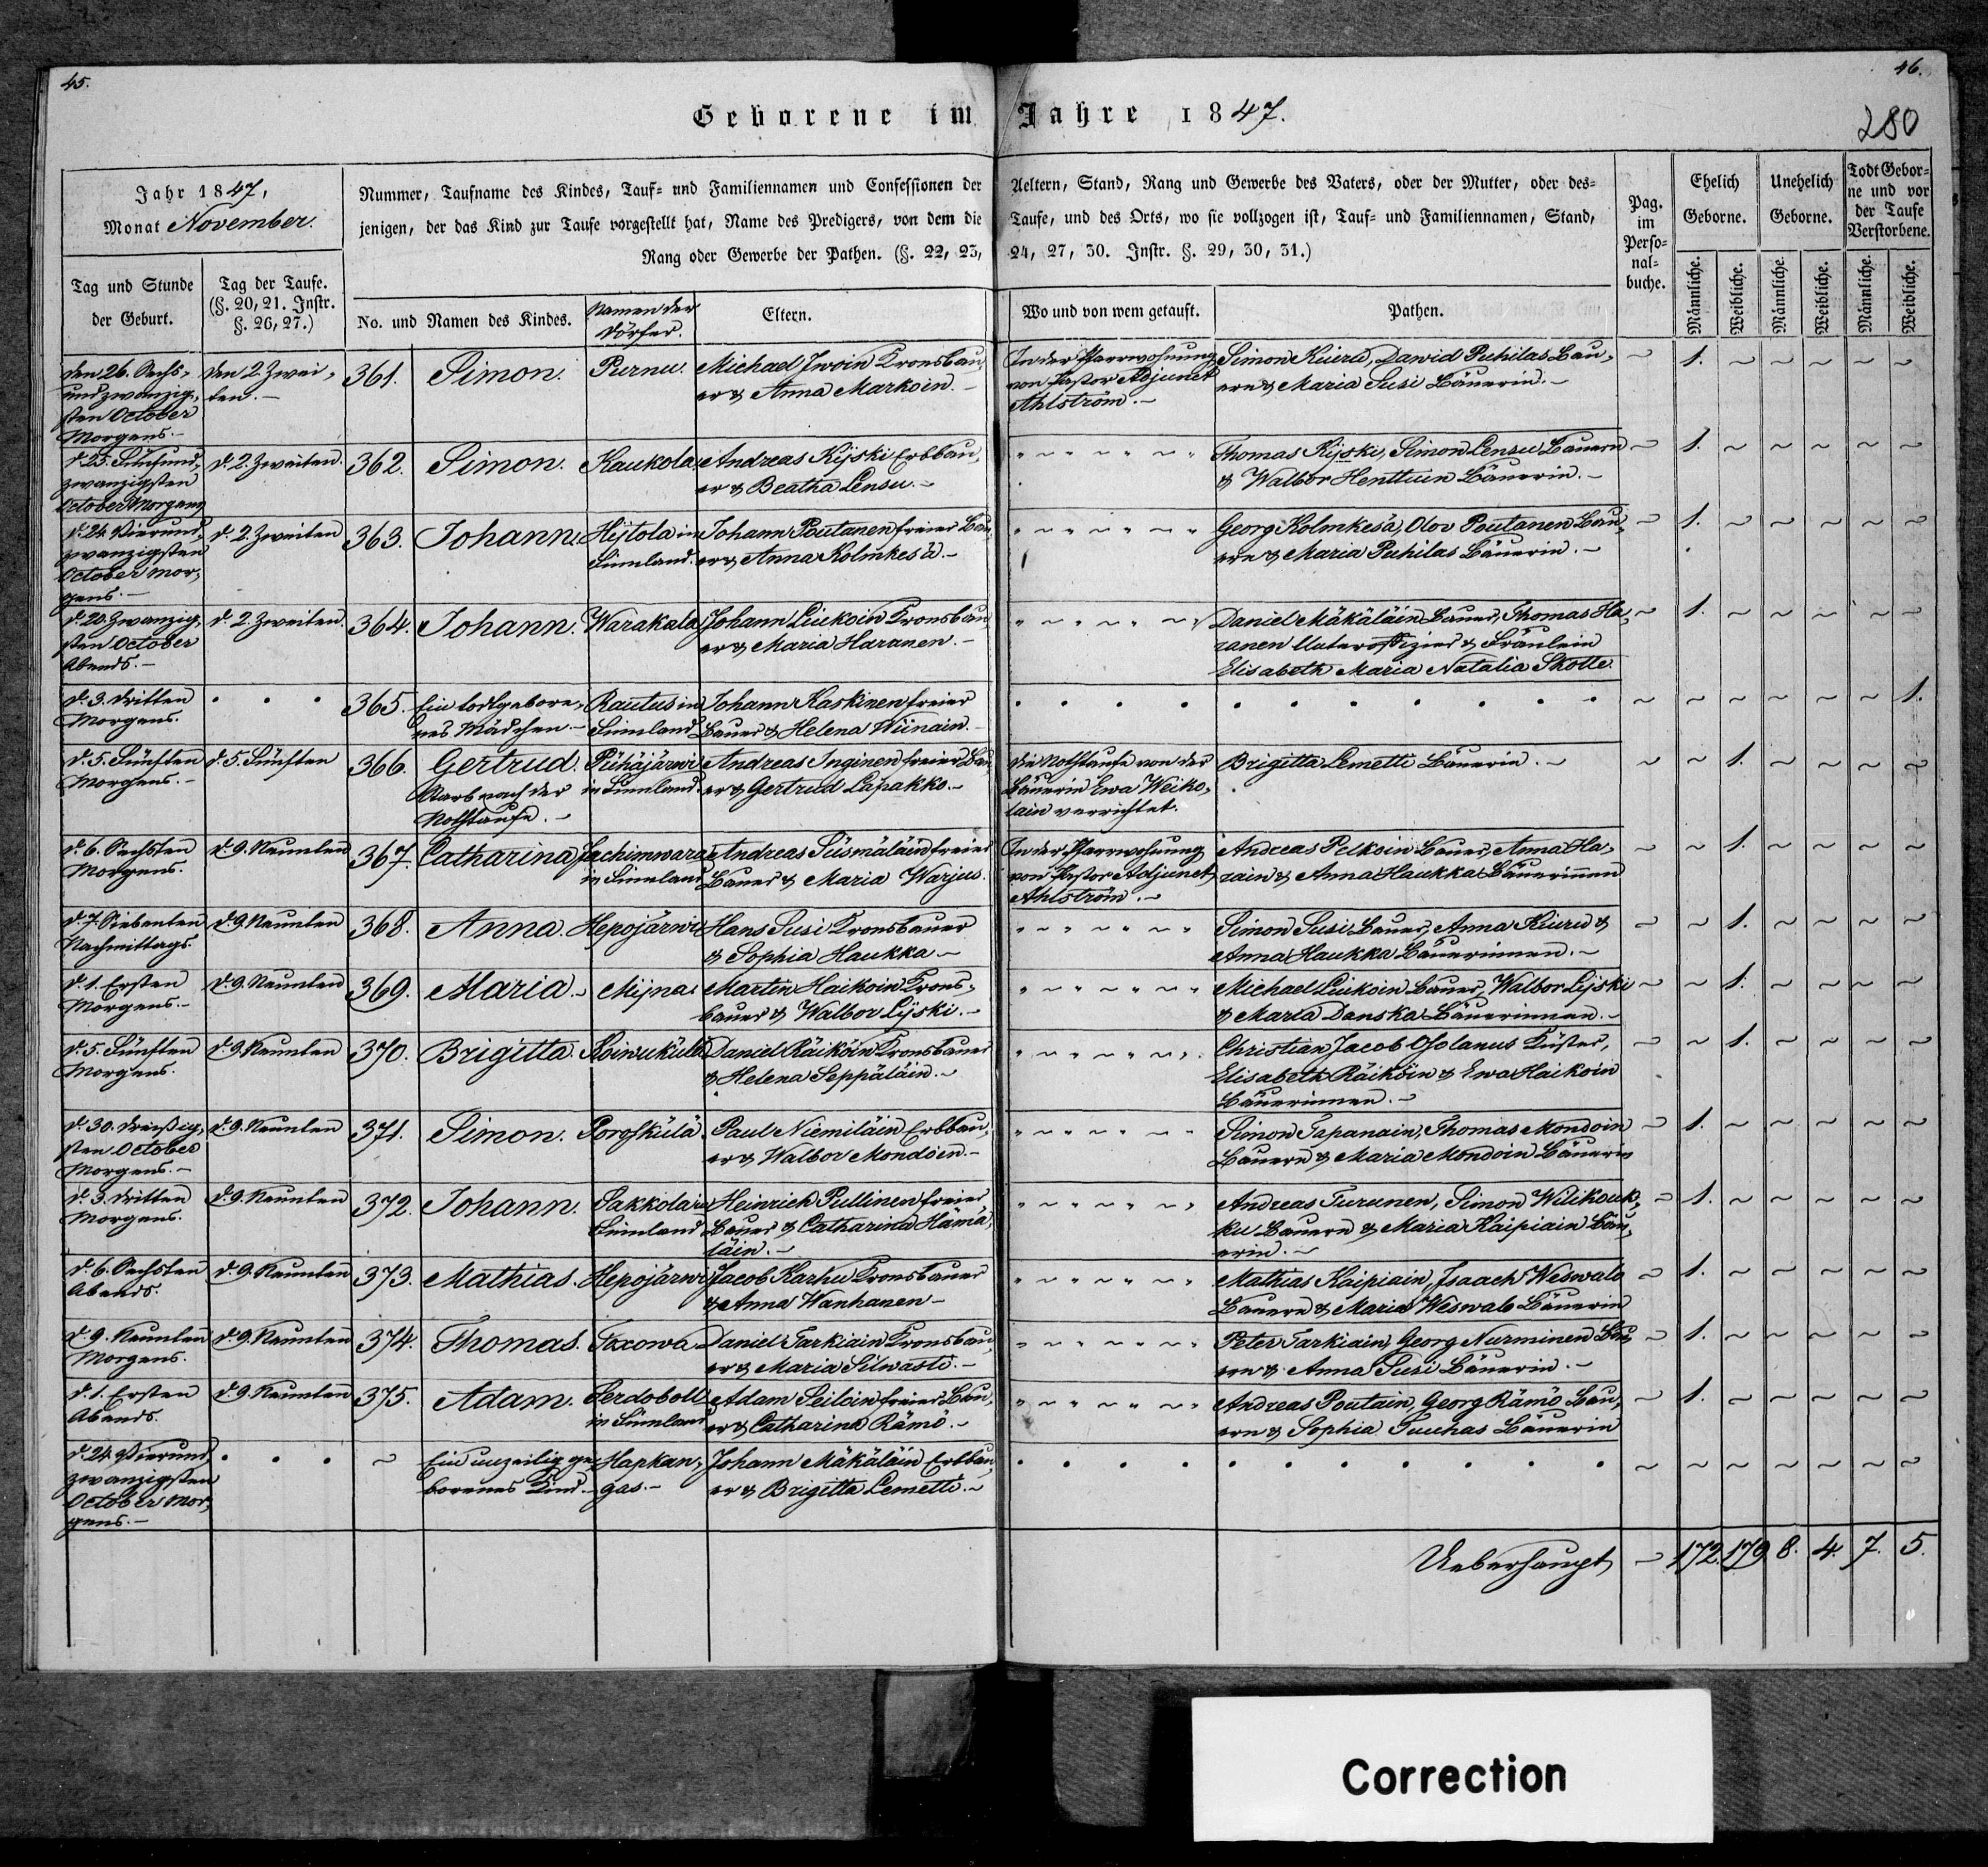 45.
46.
Geborene im Jahre 1847.
280
Jahr 1847,
Monat November.
Nummer, Taufname des Kindes, Tauf- und Familiennamen und Confessionen der Aeltern, Stand, Rang und Gewerbe des Vaters, oder der Mutter, oder des-
jenigen, der das Kind zur Taufe vorgestellt hat, Name des Predigers, von dem die Taufe, und des Orts, wo sie vollzogen ist, Tauf- und Familiennamen, Stand,
Rang oder Gewerbe der Pathen. (§. 22, 23, 24, 27, 30. Instr. §. 29, 30, 31.)
Pag.
im
Perso-
nal-
buche.
Ehelich
Geborne.
Unehelich
Geborne.
Todt Gebor-
ne und vor
der Taufe
Verstorbene.
Tag und Stunde
der Geburt.
Tag der Taufe.
(§. 20, 21. Instr.
§. 26, 27.)
No. und Namen des Kindes.
Namen der
Dörfer.
Eltern.
Wo und von wem getauft.
Pathen.
Männliche.
Weibliche.
Männliche.
Weibliche.
Männliche.
Weibliche.
den 26. Sechs-
undzwanzig-
sten October
Morgens.-
den 2. Zwei-
ten.-
361. Simon.
Purnu.
Michael Iwoin Kronsbau-
er & Anna Markoin.-
In der Pfarrwohnung
von Pastor Adjunct
Ahlström.-
Simon Kiuru, Dawid Puhilas Bau-
ern & Maria Susi Bäuerin.-
~ 1. ~ ~ ~ ~ ~
d. 25. Fünfund-
zwanzigsten
October Morgens
d. 2. Zweiten.
362. Simon.
Kaukola
Andreas Kijski Erbbau-
er & Beatha Lensu.-
" ~ " ~ " ~ "
Thomas Kijski, Simon Lensu Bauern
& Walbor Henttuin Bäuerin.-
~ 1. ~ ~ ~ ~ ~
d. 24. Vierund-
zwanzigsten
October Mor-
gens.-
d. 2. Zweiten
363. Johann.
Hijtola in
Finnland.
Johann Poutanen freier Bau-
er & Anna Kolmkesä.-
" ~ " ~ " ~ "
Georg Kolmkesä, Olov Poutanen Bau-
ern & Maria Puhilas Bäuerin.-
~ 1. ~ ~ ~ ~ ~
d. 20. Zwanzig-
sten October
Abends.-
d. 2. Zweiten.
364. Johann.
Warakala
Johann Liukoin Kronsbau-
er & Maria Haranen.-
" ~ " ~ " ~ "
Daniel Mäkäläin Bauer, Thomas Ha-
ranen Unteroffizier & Fräulein
Elisabeth Maria Natalia Skotte.
~ 1. ~ ~ ~ ~ ~
d. 3. Dritten
Morgens.
365. Ein todtgebore-
nes Mädchen.-
Rautus in
Finnland
Johann Kaskinen freier
Bauer & Helena Wiinain.-
~ ~ ~ ~ ~ ~ 1.
d. 5. Fünften
Morgens.-
d. 5. Fünften
366. Gertrud.
Starb nach der
Nothtaufe.-
Pühäjärwi
in Finnland
Andreas Inginen freier Bau-
er & Gertrud Läpakko.-
Die Nothtaufe von der
Bäuerin Ewa Weiko-
lain verrichtet.
Brigitta Lemetti Bäuerin.-
~ ~ 1. ~ ~ ~ ~
d. 6. Sechsten
Morgens.
d. 9. Neunten
367. Catharina
Jachimwara
in Finnland
Andreas Süsmäläin freier
Bauer & Maria Warjus.
In der Pfarrwohnung
von Pastor Adjunct
Ahlström.-
Andreas Pelkoin Bauer, Anna Ha-
rain & Anna Haukka Bäuerinnen
~ ~ 1. ~ ~ ~ ~
d. 7. Siebenten
Nachmittags.
d. 9. Neunten
368. Anna.
Hepojärwi
Hans Susi Kronsbauer
& Sophia Haukka-
" ~ " ~ " ~ "
Simon Susi Bauer, Anna Kiuru &
Anna Haukka Bäuerinnen.-
~ ~ 1. ~ ~ ~ ~
d. 1. Ersten
Morgens.-
d. 9. Neunten
369. Maria.-
Mijna
Martin Haikoin Krons-
bauer & Walbor Lijski.-
" ~ " ~ " ~ "
Michael Liukoin Bauer, Walbor Lijski
& Maria Danska Bäuerinnen.-
~ ~ 1. ~ ~ ~ ~
d. 5. Fünften
Morgens.
d. 9. Neunten
370. Brigitta.
Koiwuküla
Daniel Räiköin Kronsbauer
& Helena Seppäläin.-
" ~ " ~ " ~ "
Christian Jacob Osolanus Küster,
Elisabeth Räiköin & Ewa Haikoin
Bäuerinnen.-
~ ~ 1. ~ ~ ~ ~
d. 30. Dreißig-
sten October
Morgens.-
d. 9. Neunten
371. Simon.
Poroskülä.
Paul Niemiläin Erbbau-
er & Walbor Mondoin.-
" ~ " ~ " ~ "
Simon Tapanain, Thomas Mondoin
Bauern & Maria Mondoin Bäuerin
~ 1. ~ ~ ~ ~ ~
d. 3. Dritten
Morgens.
d. 9. Neunten
372. Johann.
Sakkola in
Finnland
Heinrich Pullinen freier
Bauer & Catharina Hämä-
läin.-
" ~ " ~ " ~ "
Andreas Turunen, Simon Wilikouk-
ku Bauern & Maria Kaipiain Bäu-
erin.-
~ 1. ~ ~ ~ ~ ~
d. 6. Sechsten
Abends.
d. 9. Neunten
373. Mathias.
Hepojärwi
Jacob Karhu Kronsbauer
& Anna Wanhanen-
" ~ " ~ " ~ "
Mathias Kaipiain, Isaach Weswalo
Bauern & Maria Weswalo Bäuerin
~ 1. ~ ~ ~ ~ ~
d. 9. Neunten
Morgens.
d. 9. Neunten
374. Thomas.
Toxowa
Daniel Tarkiain Kronsbau-
er & Maria Silwasti.-
" ~ " ~ " ~ "
Peter Tarkiain, Georg Nurminen Bau-
ern & Anna Susi Bäuerin.-
~ 1. ~ ~ ~ ~ ~
d. 1. Ersten
Abends.
d. 9. Neunten
375. Adam.
Serdoboll
in Finnland
Adam Seiloin freier Bau-
er & Catharina Rämö.-
" ~ " ~ " ~ "
Andreas Poutain, Georg Rämö Bau-
ern & Sophia Tuuhas Bäuerin
~ 1. ~ ~ ~ ~ ~
d. 24. Vierund-
zwanzigsten
October Mor-
gens.-
~ Ein unzeitig ge-
borenes Kind.-
Hapkan-
gas.-
Johann Mäkäläin Erbbau-
er & Brigitta Lemetti.-
~ ~ ~ ~ ~ ~ ~
Ueberhaupt ~ 172. 179 8. 4. 7. 5.
Correction